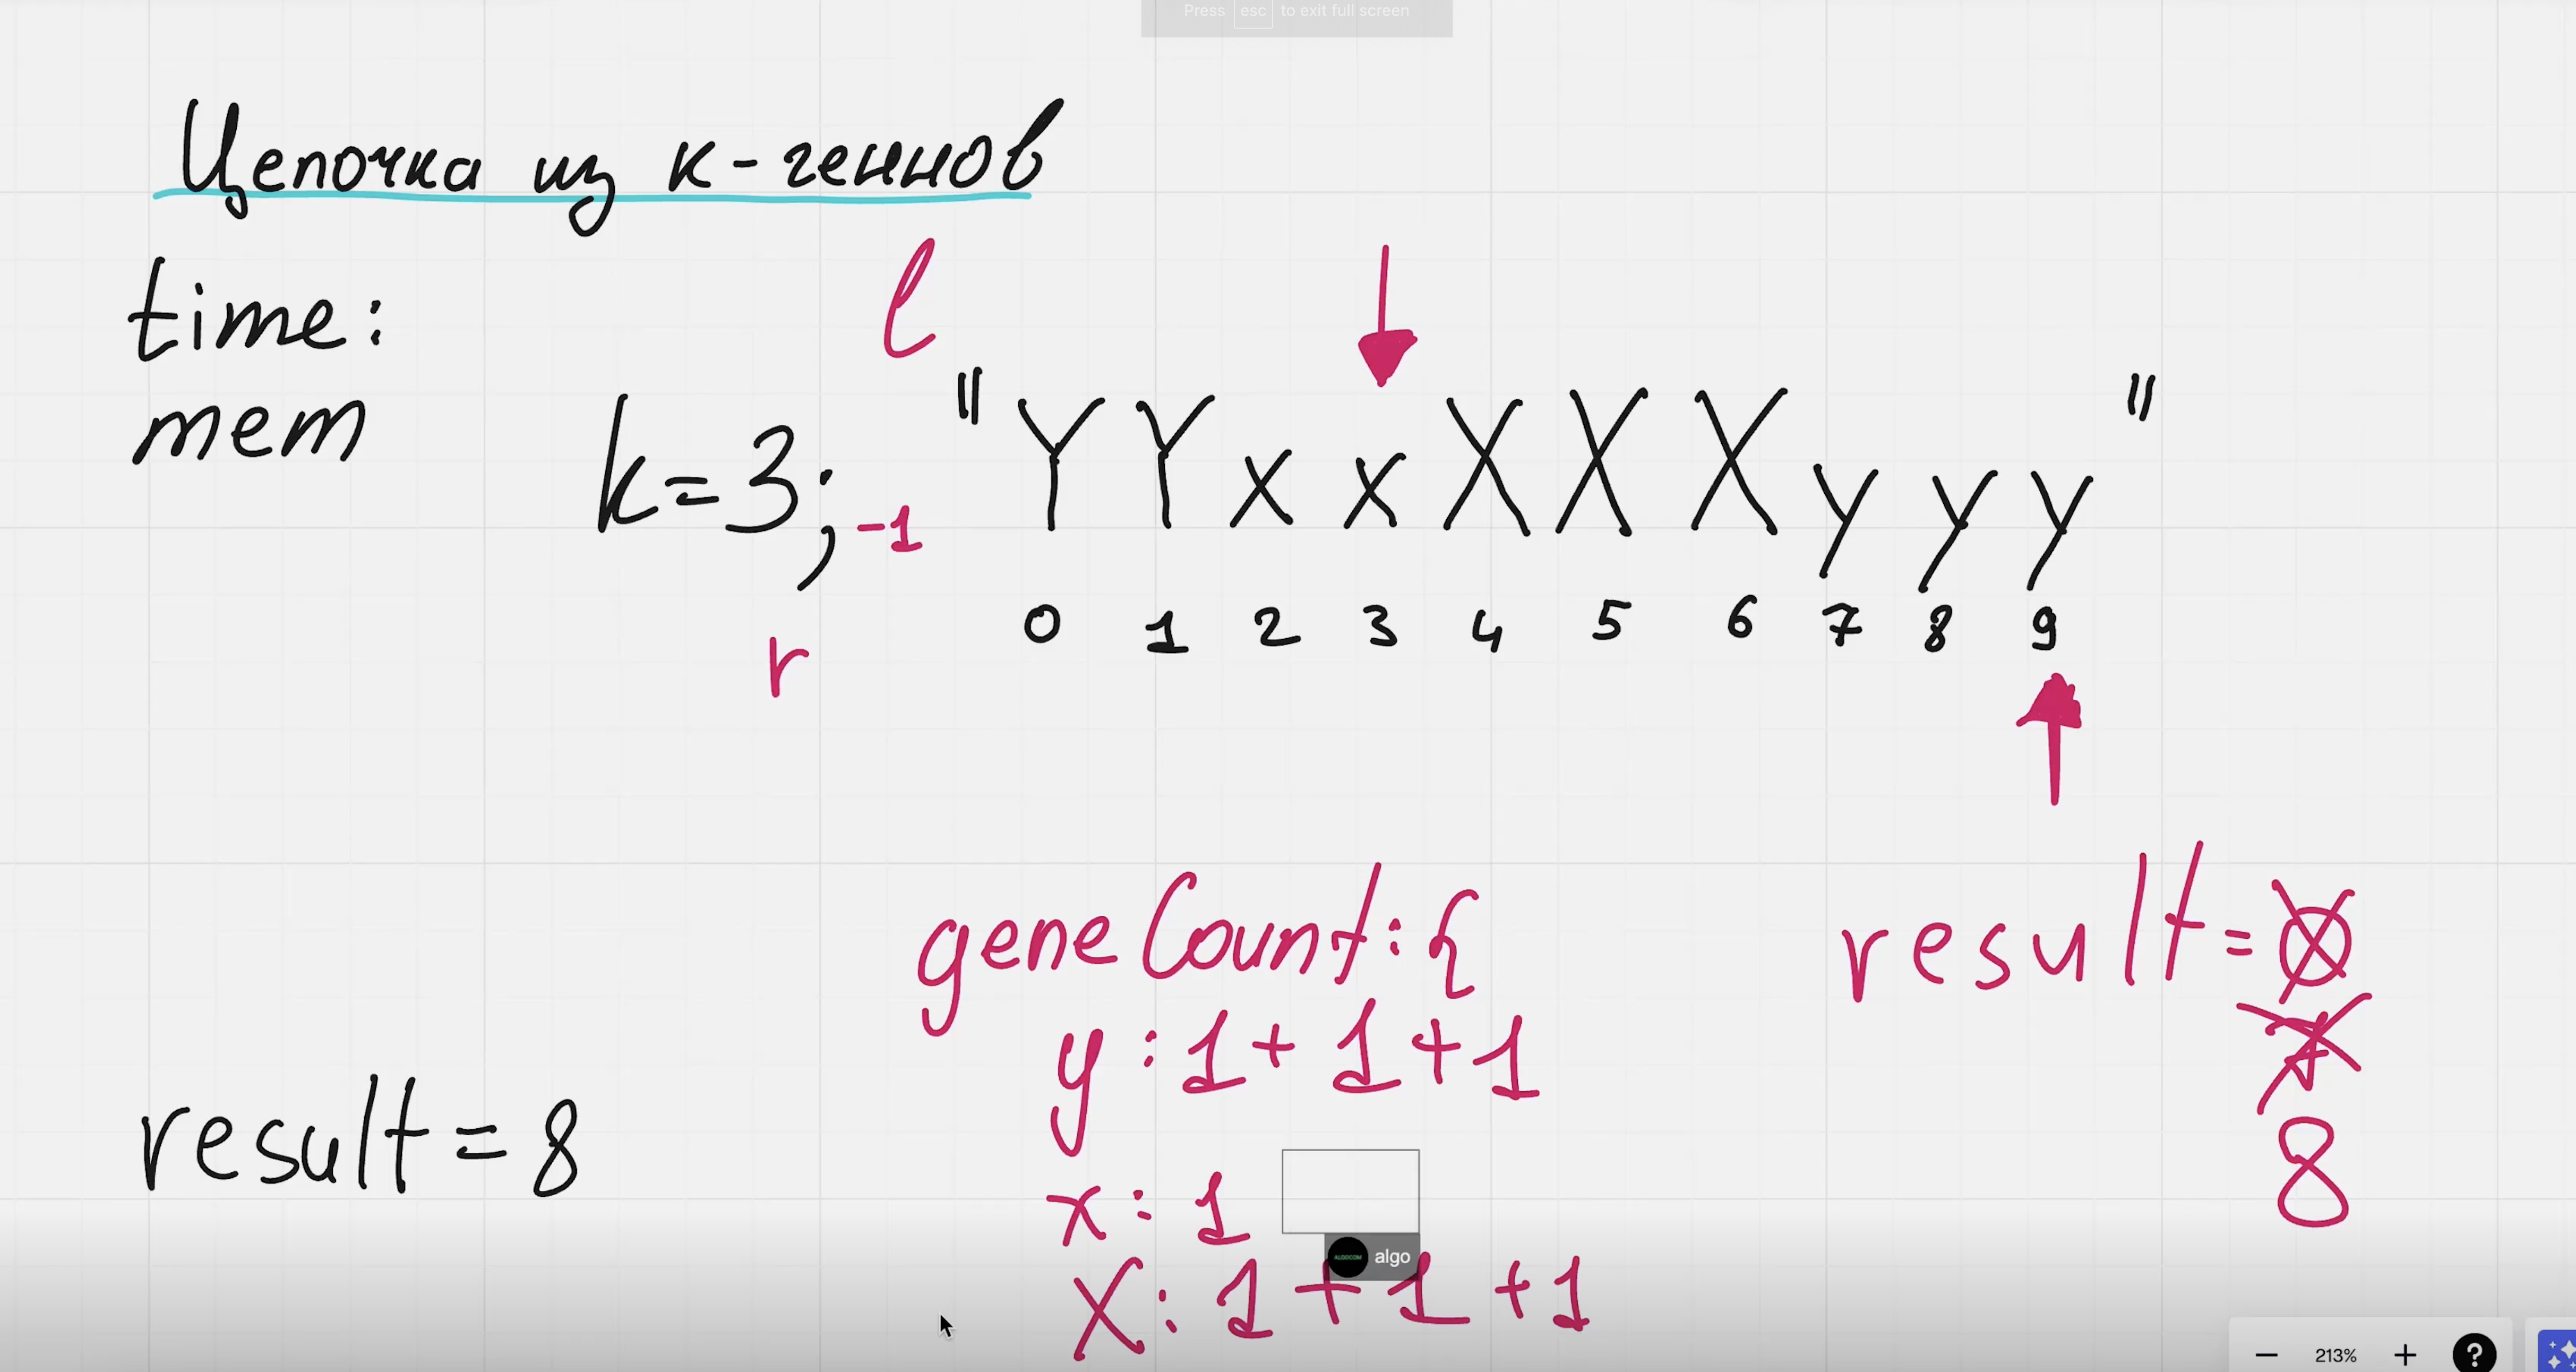 Press esc to exit full screen
Цепочка из к-геннов
time:
mem
l
k=3; -1 "YYxxXXXyyy"
0 1 2 3 4 5 6 7 8 9
r
geneCount: {
y: 1+1+1
x: 1
X: 1+1+1
result=0
7
8
result=8
ALGOCOM algo
213%
?